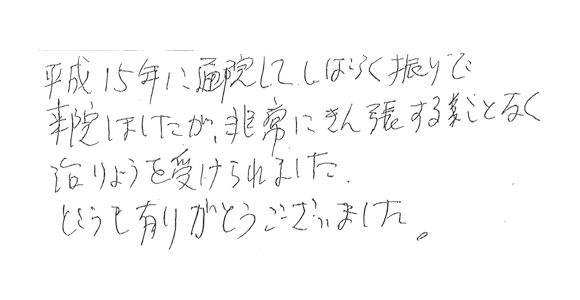 平成15年に通院して、しばらく振りで
来院しましたが、非常にきん張する事となく
治りょうを受けられました。
どうも有りがとうございました。